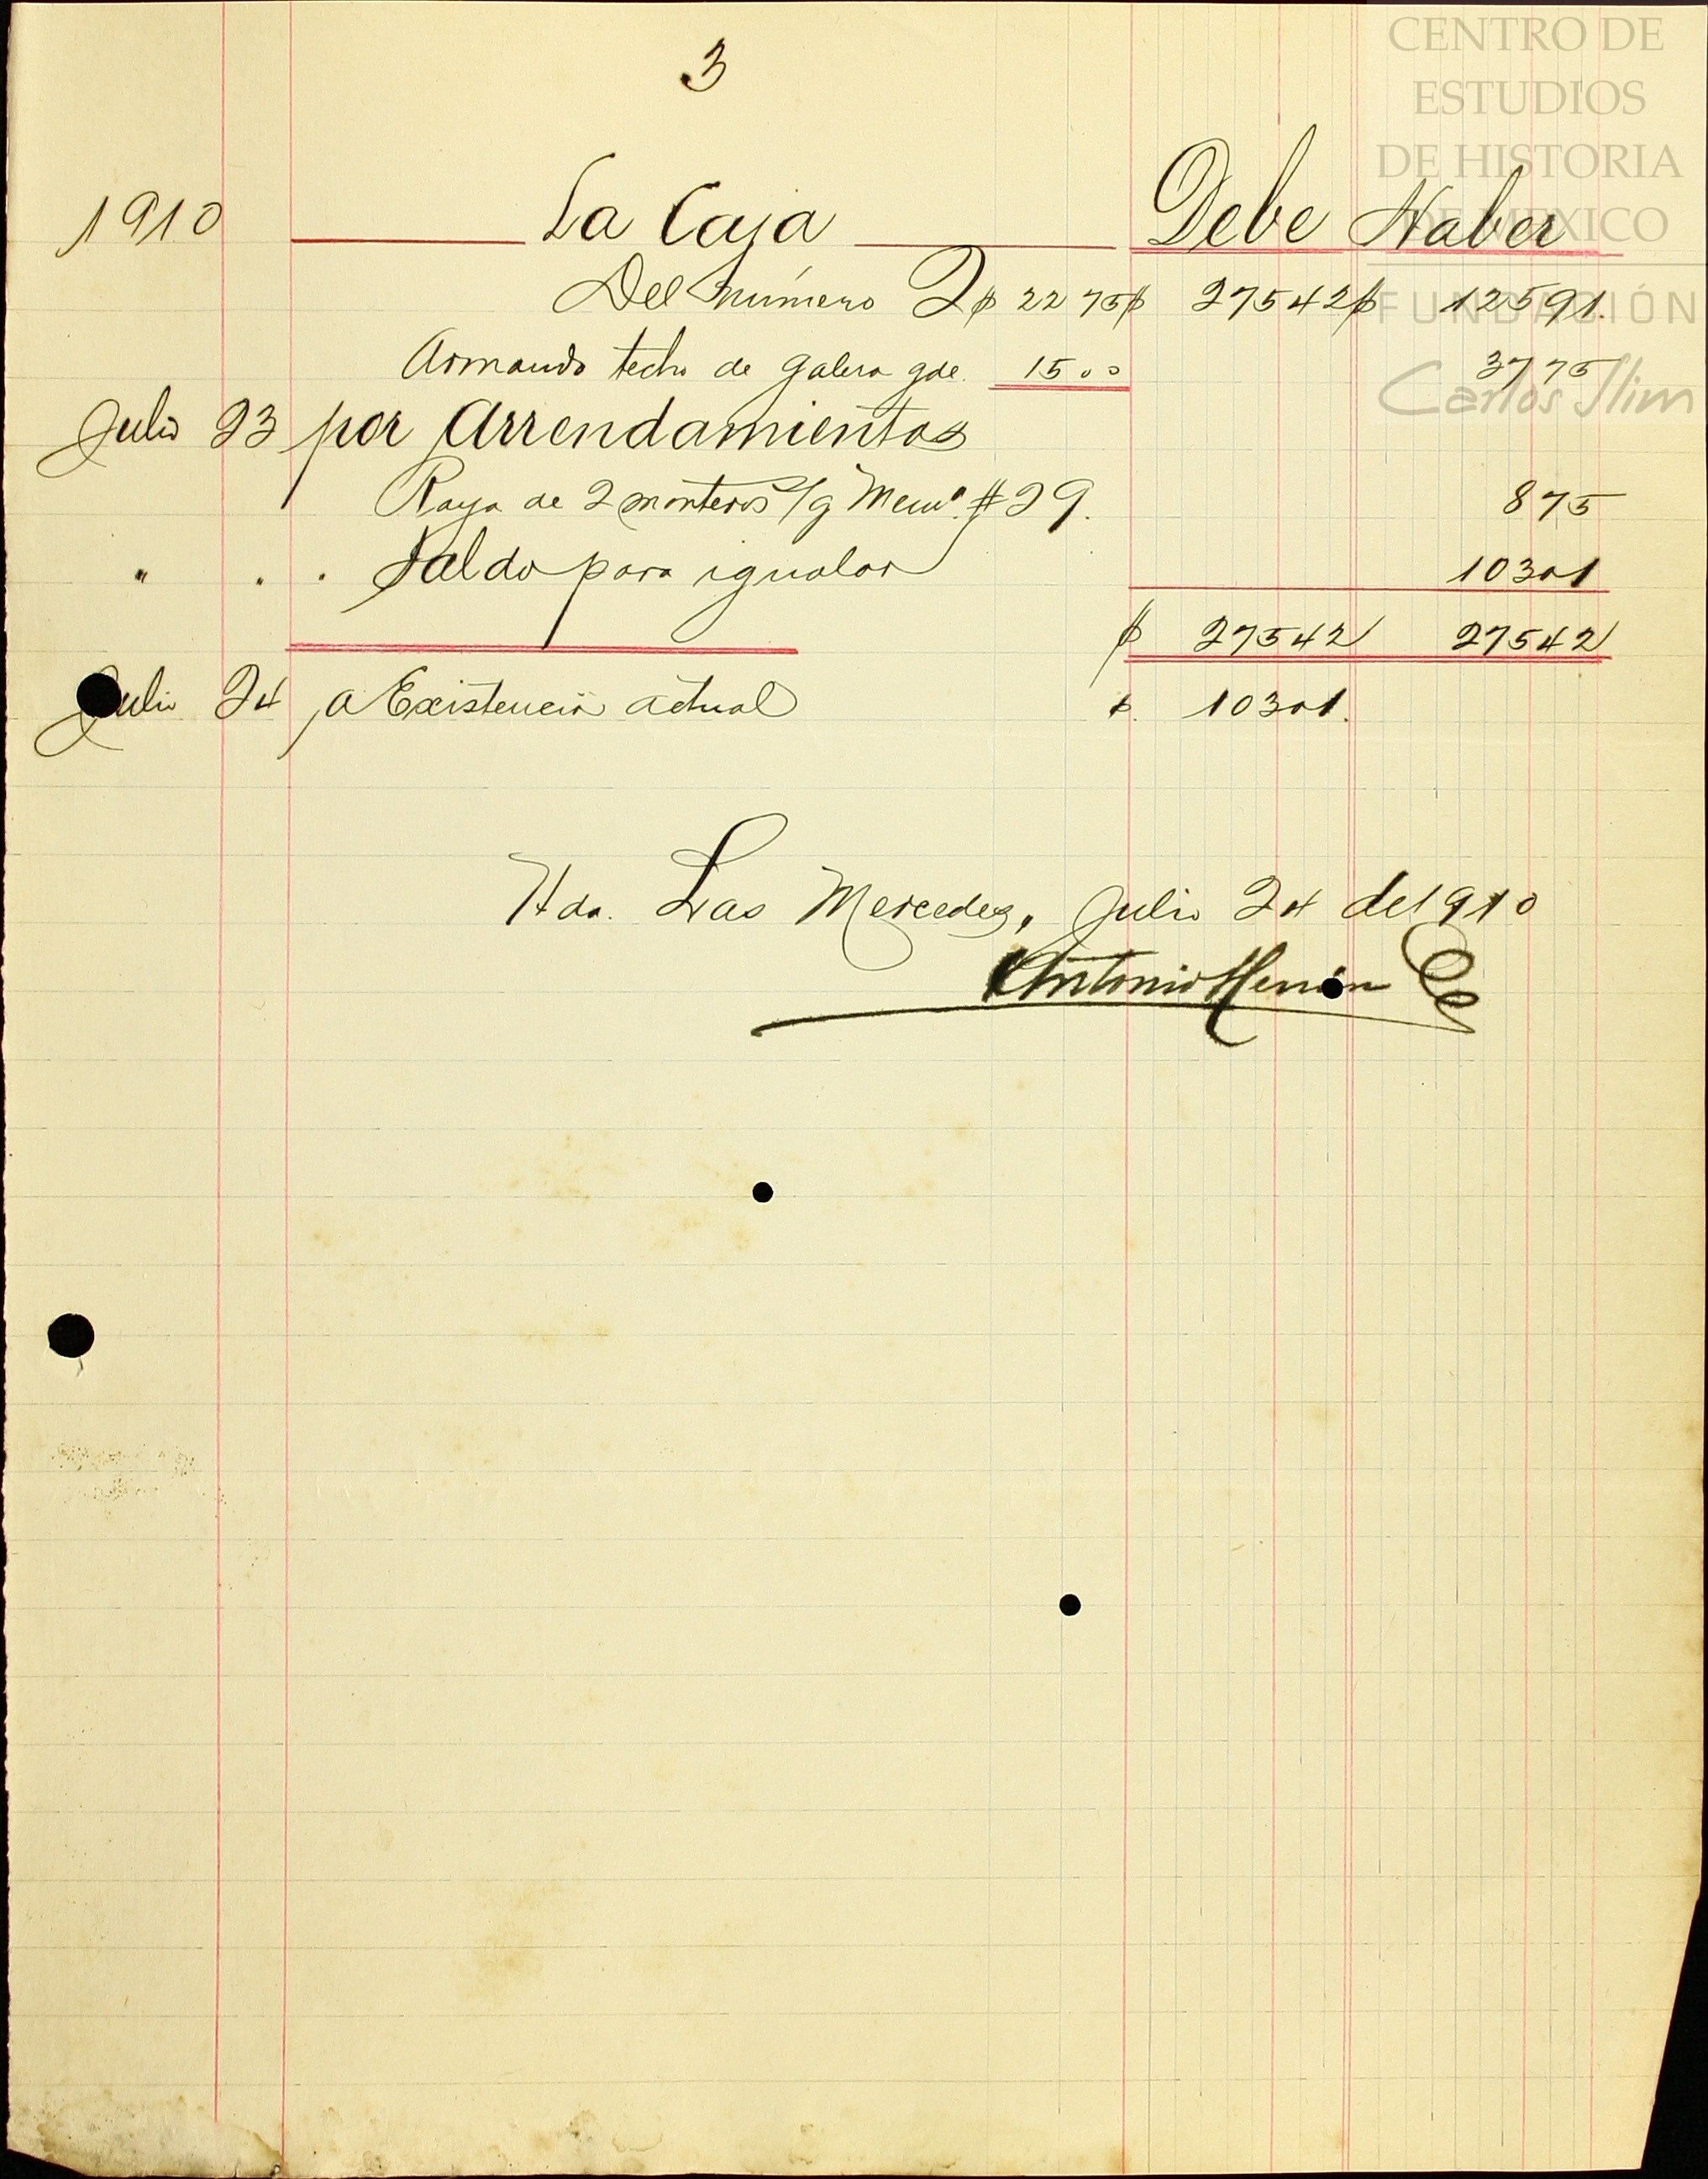 CENTRO DE
ESTUDIOS
DE HISTORIA
DE MÉXICO
FUNDACIÓN
Carlos Slim
3
1910 La Caja Debe Haber
Del número 2 $ 22 75 $ 27542 $ 12591.
Armando techo de galera gde. 15 00 37 75
Julio 23 por Arrendamientos
Raya de 2 monteros s/g Memo. #29. 875
" . . Saldo para igualar 10301
$ 27542 27542
Julio 24 a Existencia actual $. 10301.
Hda. Las Mercedes, Julio 24 de 1910
Antonio